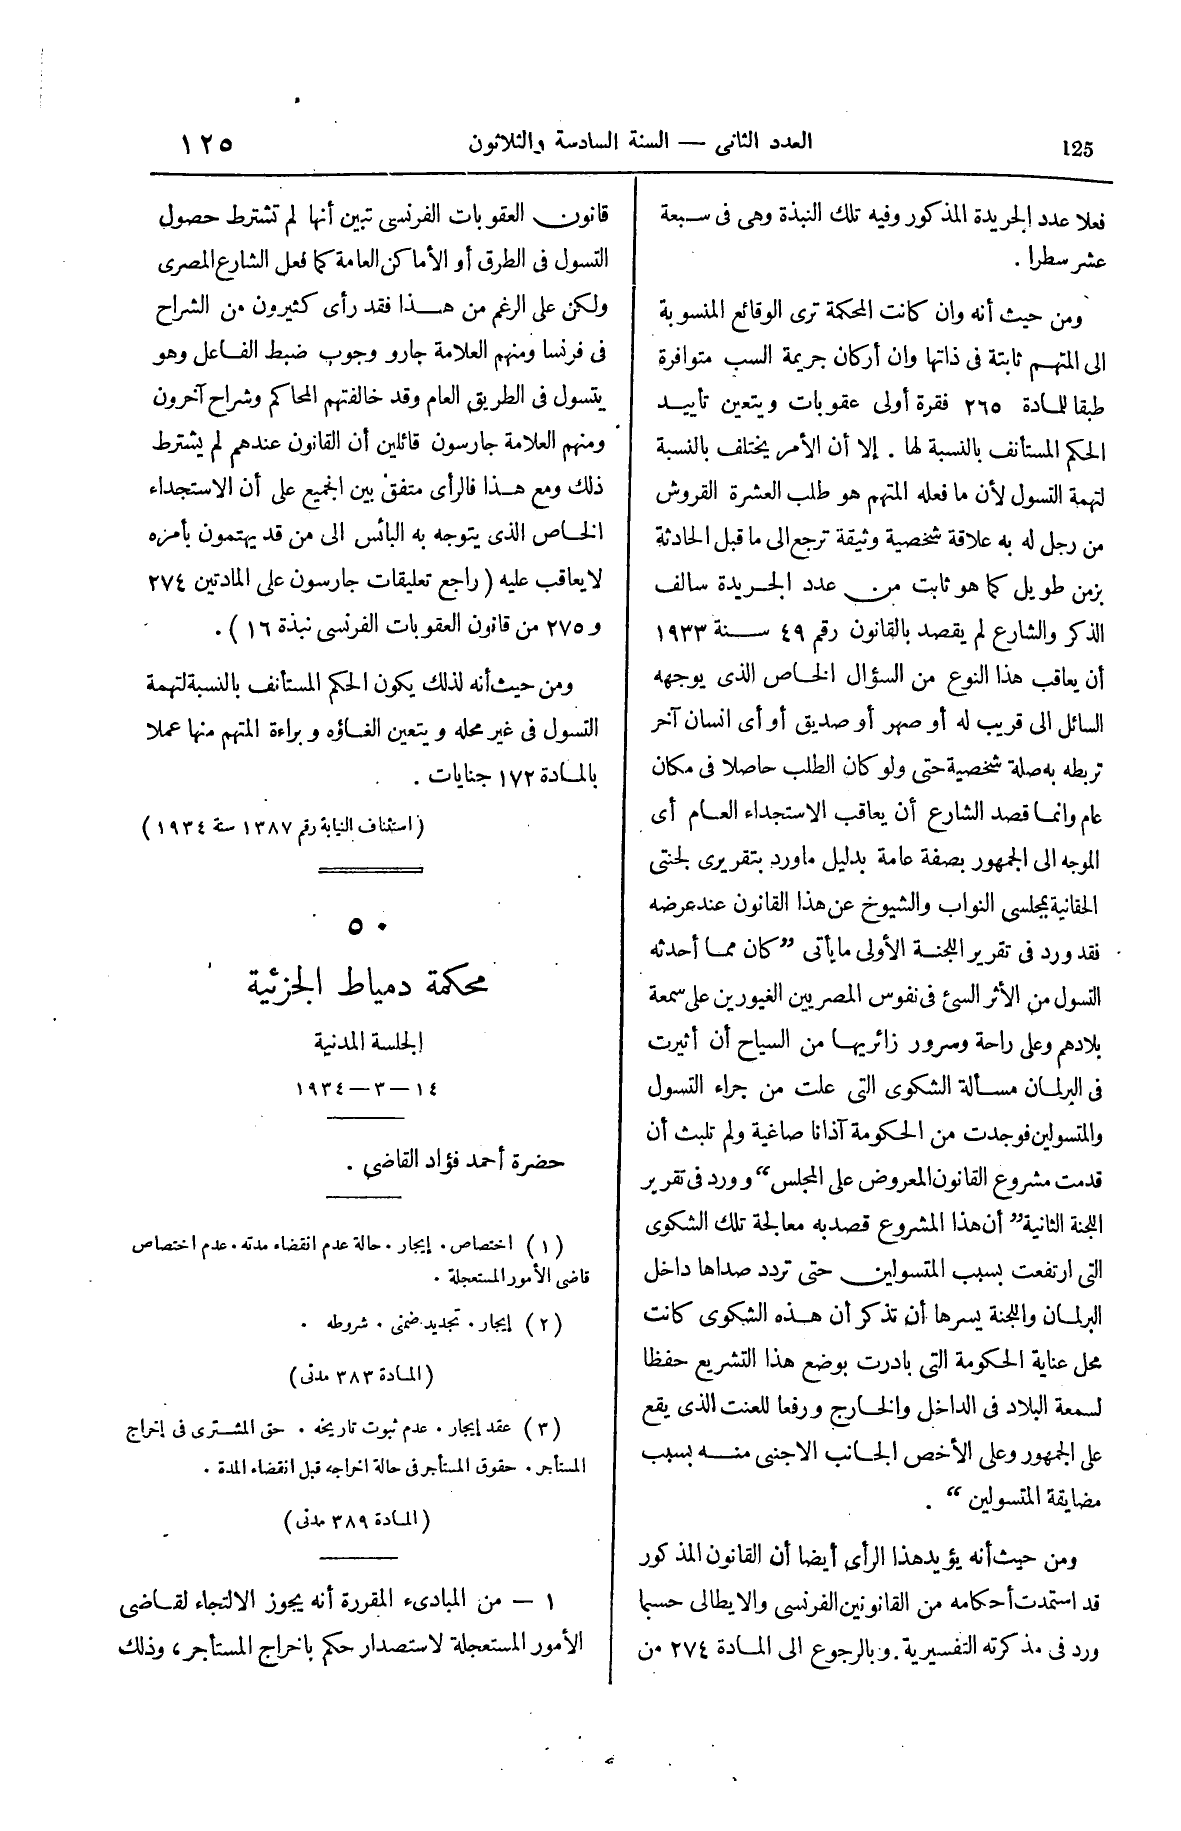 125
العدد الثانى — السنة السادسة والثلاثون
١٢٥
فعلا عدد الجريدة المذكور وفيه تلك النبذة وهى فى سبعة
عشر سطرا .
ومن حيث أنه وان كانت المحكمة ترى الوقائع المنسوبة
الى المتهم ثابتة فى ذاتها وان أركان جريمة السب متوافرة
طبقا للمادة ٢٦٥ فقرة أولى عقوبات ويتعين تأييد
الحكم المستأنف بالنسبة لها . إلا أن الأمر يختلف بالنسبة
لتهمة التسول لأن ما فعله المتهم هو طلب العشرة القروش
من رجل له به علاقة شخصية وثيقة ترجع الى ما قبل الحادثة
بزمن طويل كما هو ثابت من عدد الجريدة سالف
الذكر والشارع لم يقصد بالقانون رقم ٤٩ سنة ١٩٣٣
أن يعاقب هذا النوع من السؤال الخاص الذى يوجهه
السائل الى قريب له أو صهر أو صديق أو أى انسان آخر
تربطه به صلة شخصية حتى ولو كان الطلب حاصلا فى مكان
عام وانما قصد الشارع أن يعاقب الاستجداء العام أى
الموجه الى الجمهور بصفة عامة بدليل ماورد بتقريرى لجنتى
الحقانية بمجلسى النواب والشيوخ عن هذا القانون عند عرضه
نقد ورد فى تقرير اللجنة الأولى مايأتى ”كان مما أحدثه
التسول من الأثر السئ فى نفوس المصريين الغيورين على سمعة
بلادهم وعلى راحة وسرور زائريها من السياح أن أثيرت
فى البرلمان مسألة الشكوى التى علت من جراء التسول
والمتسولين فوجدت من الحكومة آذانا صاغية ولم تلبث أن
قدمت مشروع القانون المعروض على المجلس“ وورد فى تقرير
اللجنة الثانية ”أن هذا المشروع قصد به معالجة تلك الشكوى
التى ارتفعت بسبب المتسولين حتى تردد صداها داخل
البرلمان واللجنة يسرها أن تذكر أن هذه الشكوى كانت
محل عناية الحكومة التى بادرت بوضع هذا التشريع حفظا
لسمعة البلاد فى الداخل والخارج ورفعا للعنت الذى يقع
على الجمهور وعلى الأخص الجانب الاجنبى منه بسبب
مضايقة المتسولين“ .
ومن حيث أنه يؤيد هذا الرأى أيضا أن القانون المذكور
قد استمدت أحكامه من القانونين الفرنسى والايطالى حسبما
ورد فى مذكرته التفسيرية . وبالرجوع الى المادة ٢٧٤ من
قانون العقوبات الفرنسى تبين أنها لم تشترط حصول
التسول فى الطرق أو الأماكن العامة كما فعل الشارع المصرى
ولكن على الرغم من هذا فقد رأى كثيرون من الشراح
فى فرنسا ومنهم العلامة چارو وجوب ضبط الفاعل وهو
يتسول فى الطريق العام وقد خالفتهم المحاكم وشراح آخرون
ومنهم العلامة جارسون قائلين أن القانون عندهم لم يشترط
ذلك ومع هذا فالرأى متفق بين الجميع على أن الاستجداء
الخاص الذى يتوجه به البائس الى من قد يهتمون بأمره
لا يعاقب عليه ( راجع تعليقات جارسون على المادتين ٢٧٤
و ٢٧٥ من قانون العقوبات الفرنسى نبذة ١٦ ) .
ومن حيث أنه لذلك يكون الحكم المستأنف بالنسبة لتهمة
التسول فى غير محله ويتعين الغاؤه وبراءة المتهم منها عملا
بالمادة ١٧٢ جنايات .
( استئناف النيابة رقم ١٣٨٧ سنة ١٩٣٤ )
٥٠
محكمة دمياط الجزئية
الجلسة المدنية
١٤ — ٣ — ١٩٣٤
حضرة أحمد فؤاد القاضى .
( ١ ) اختصاص . إيجار . حالة عدم انقضاء مدته . عدم اختصاص
قاضى الأمور المستعجلة .
( ٢ ) إيجار . تجديد ضمنى . شروطه .
( المادة ٣٨٣ مدنى )
( ٣ ) عقد إيجار . عدم ثبوت تاريخه . حق المشترى فى إخراج
المستأجر . حقوق المستأجر فى حالة اخراجه قبل انقضاء المدة .
( المادة ٣٨٩ مدنى )
١ — من المبادىء المقررة أنه يجوز الالتجاء لقاضى
الأمور المستعجلة لاستصدار حكم باخراج المستأجر، وذلك